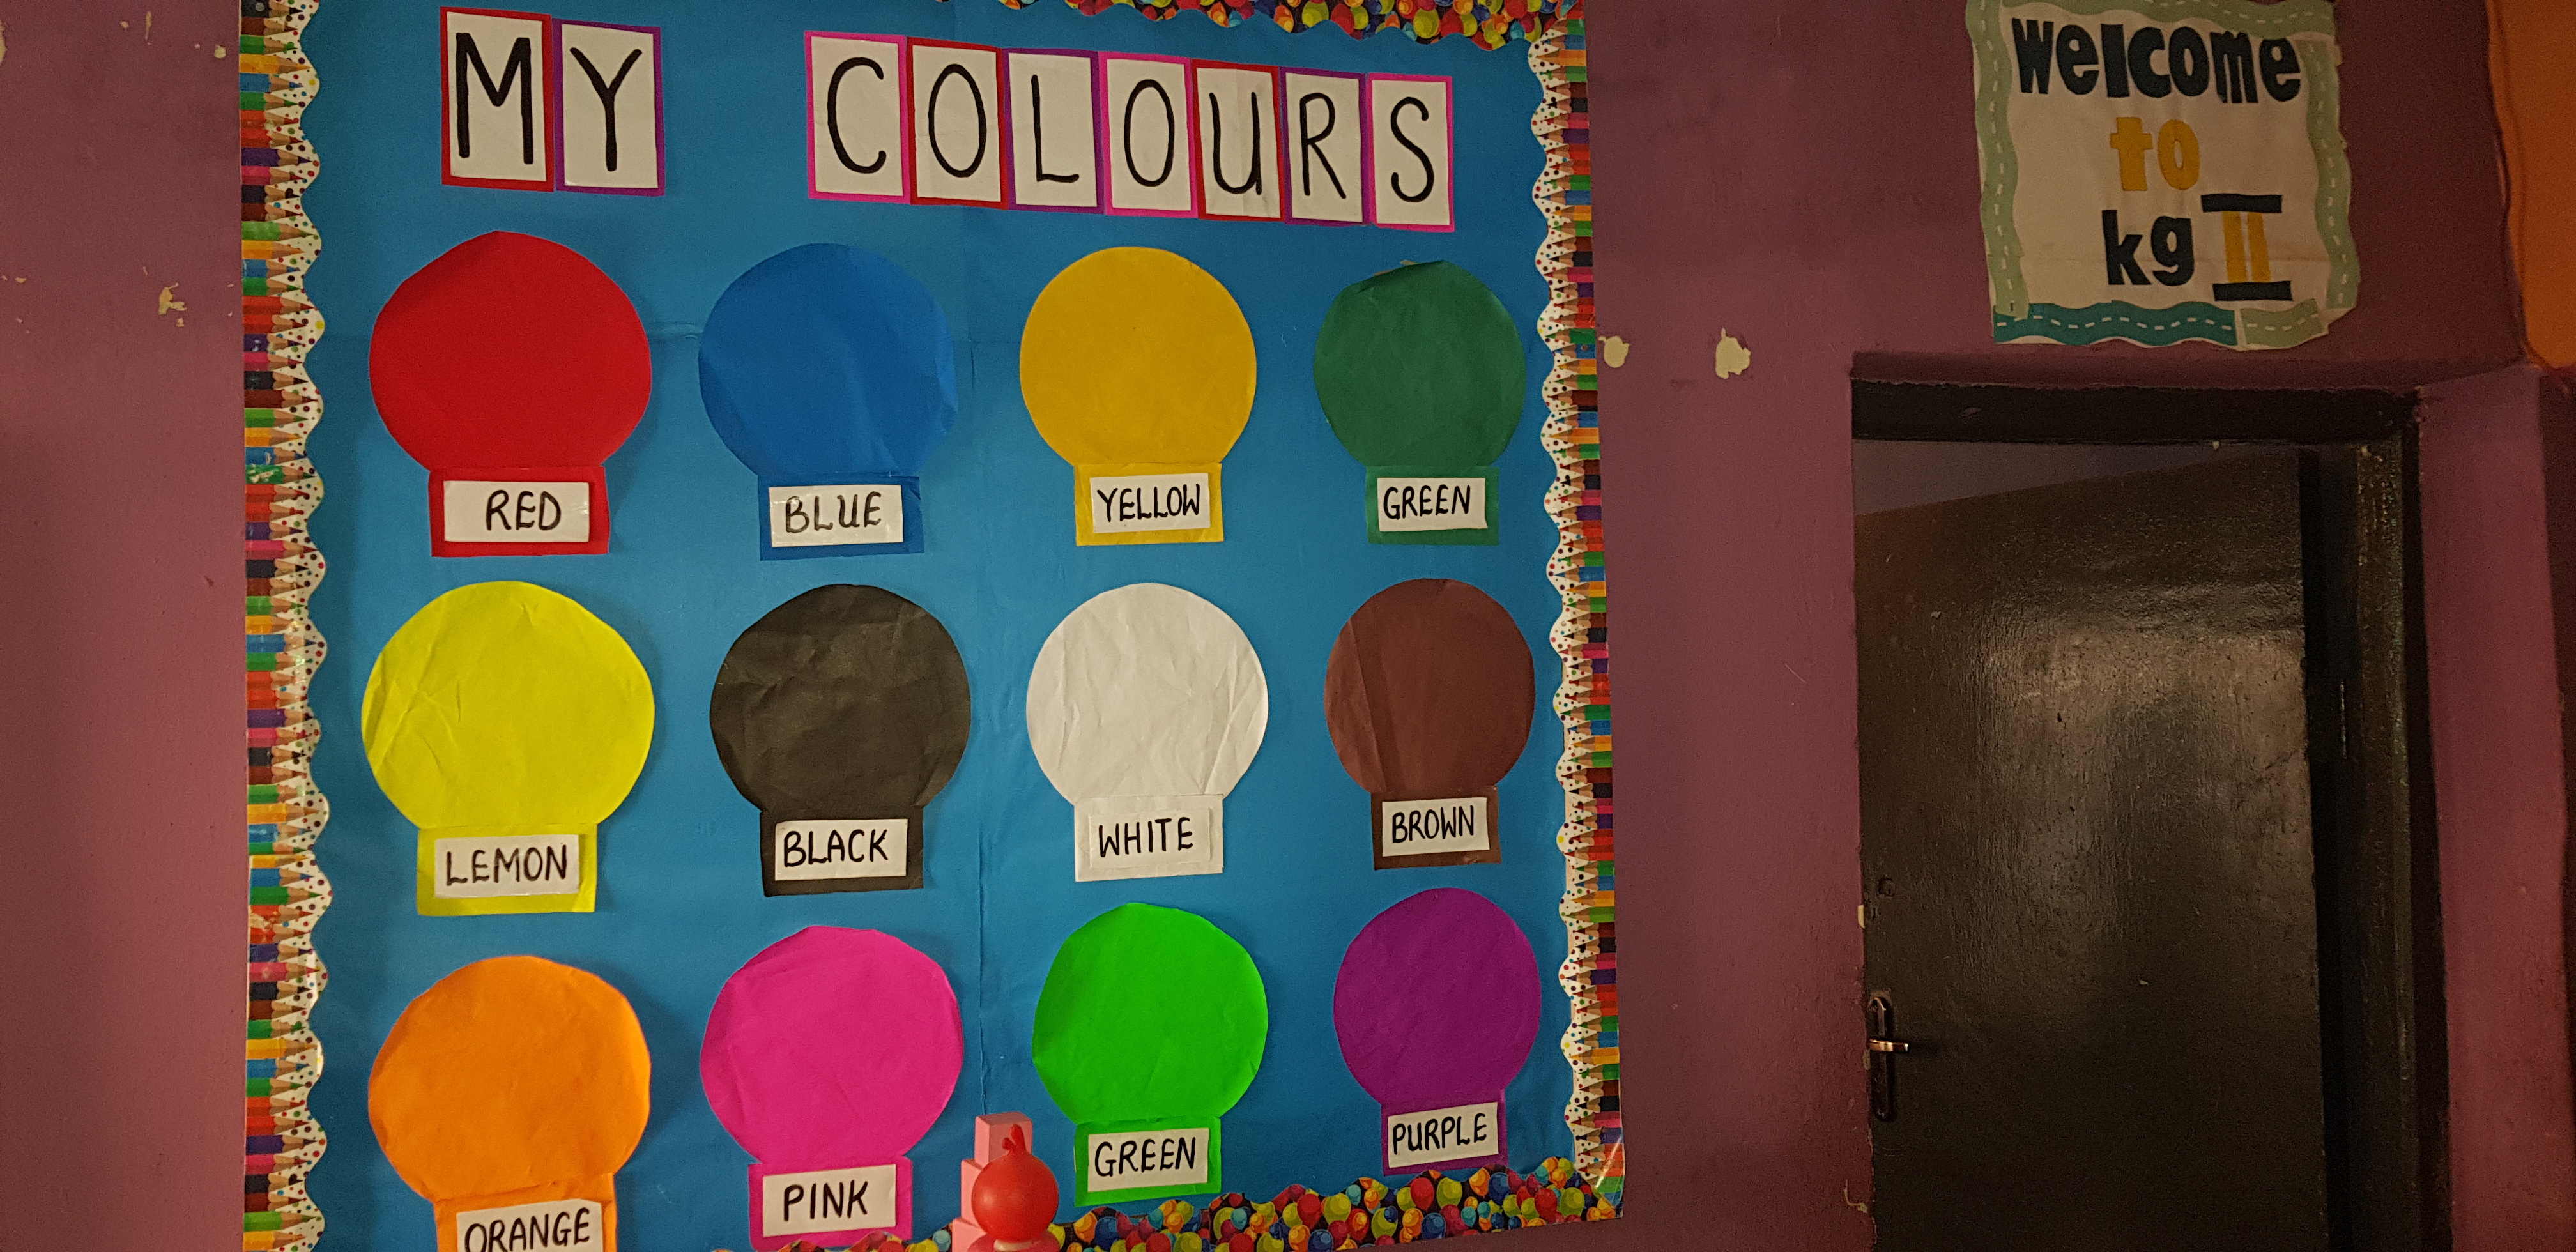 MY COLOURS
RED BLUE YELLOW GREEN
LEMON BLACK WHITE BROWN
ORANGE PINK GREEN PURPLE
welcome
to
kg II